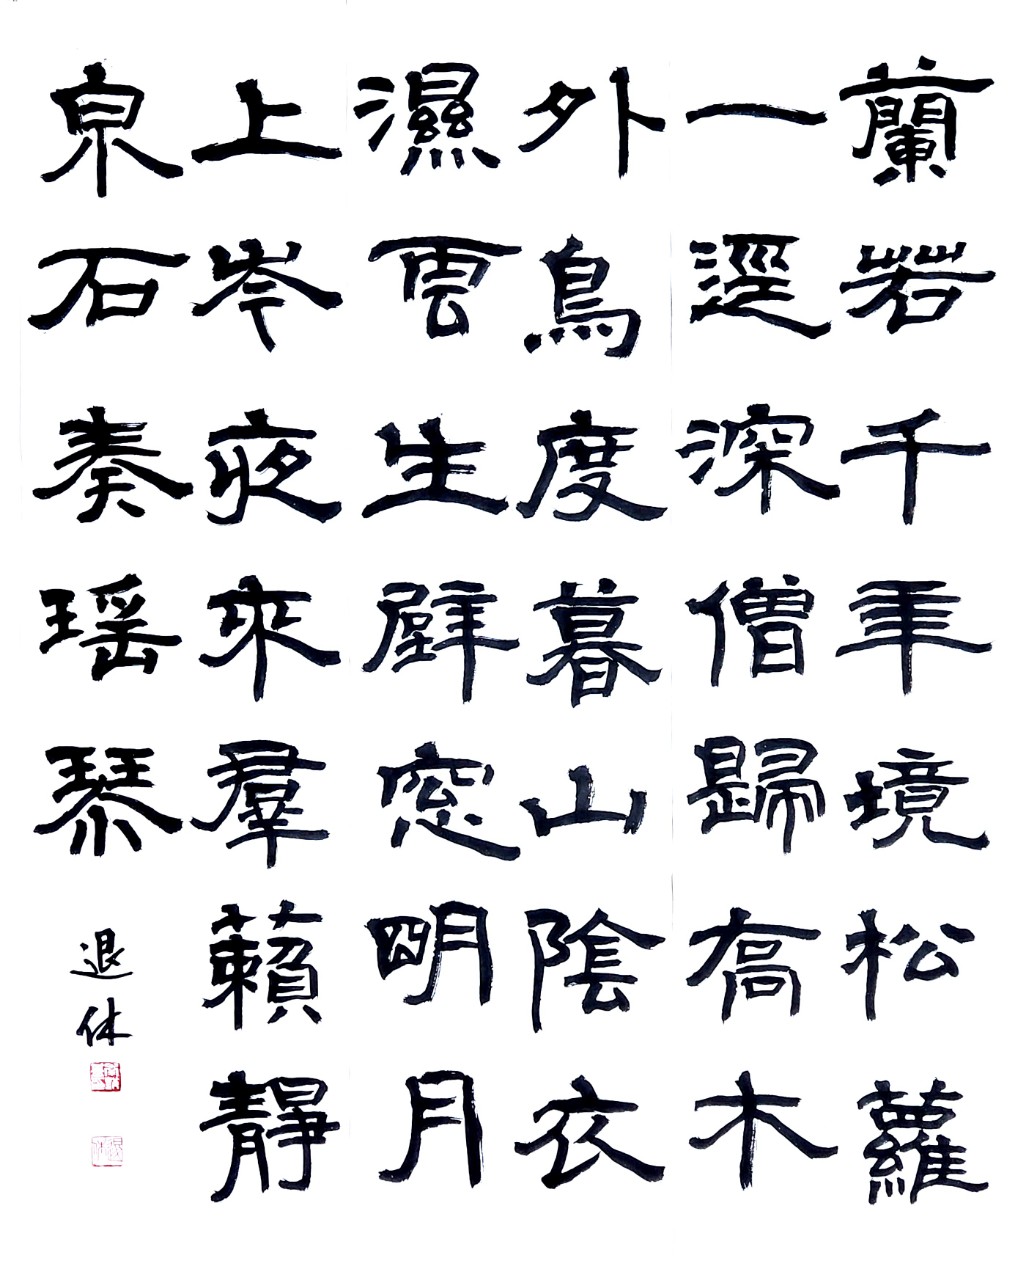 蘭若千年境松蘿
一逕深僧歸喬木
外鳥度暮山陰衣
濕雲生壁窓明月
上岑夜來羣籟靜
泉石奏瑶琴
退休